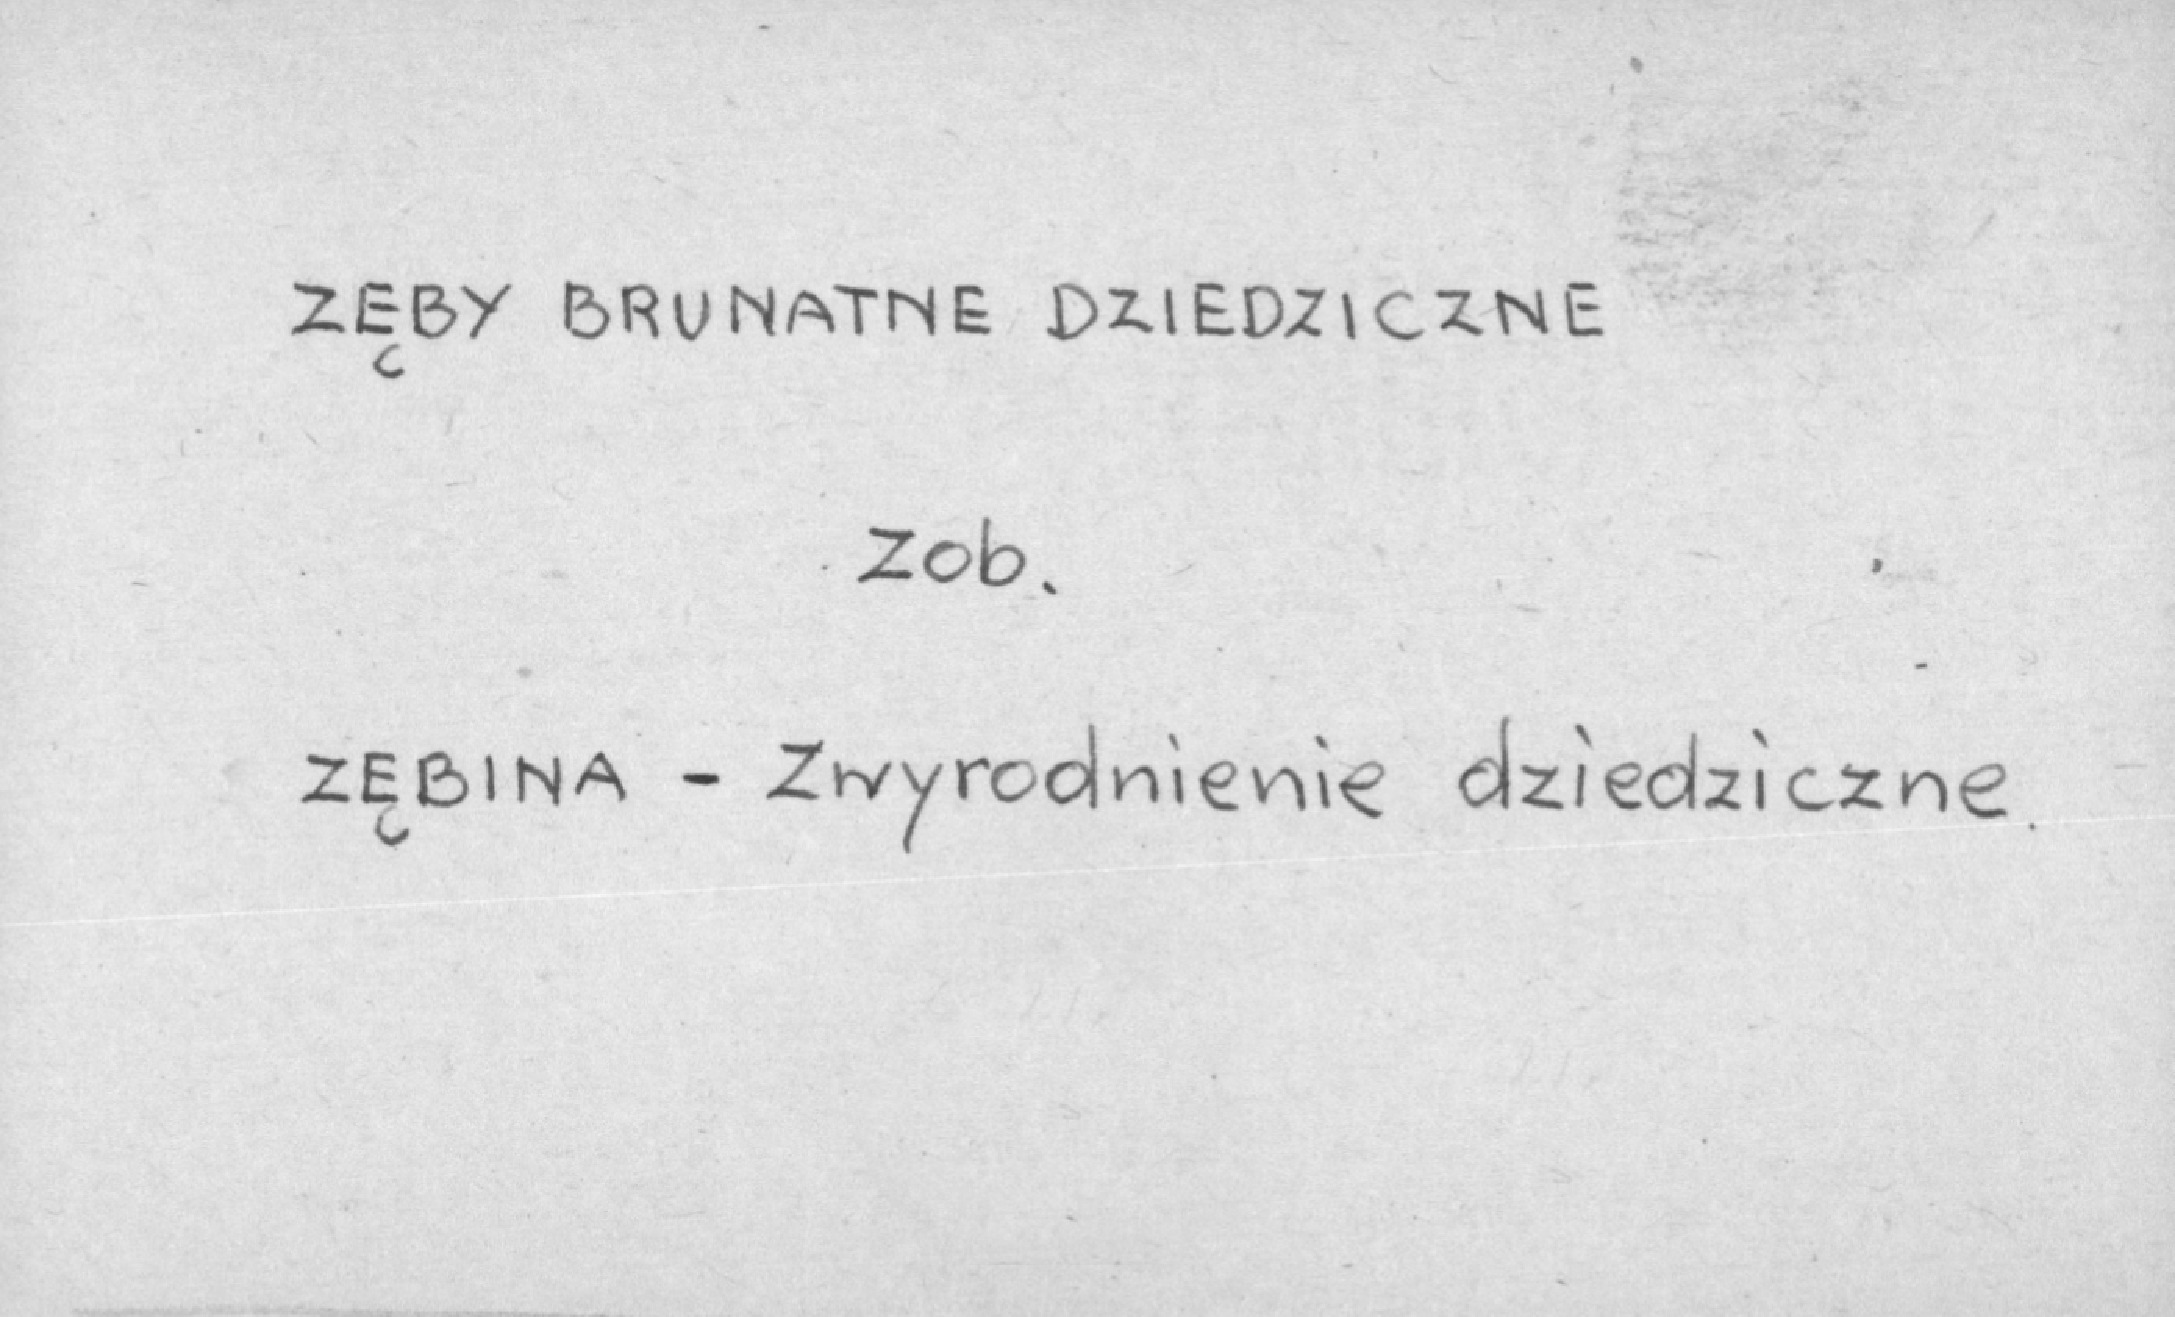 ZĘBY BRUNATNE DZIEDZICZNE
Zob.
ZĘBINA - Zwyrodnienie dziedziczne.